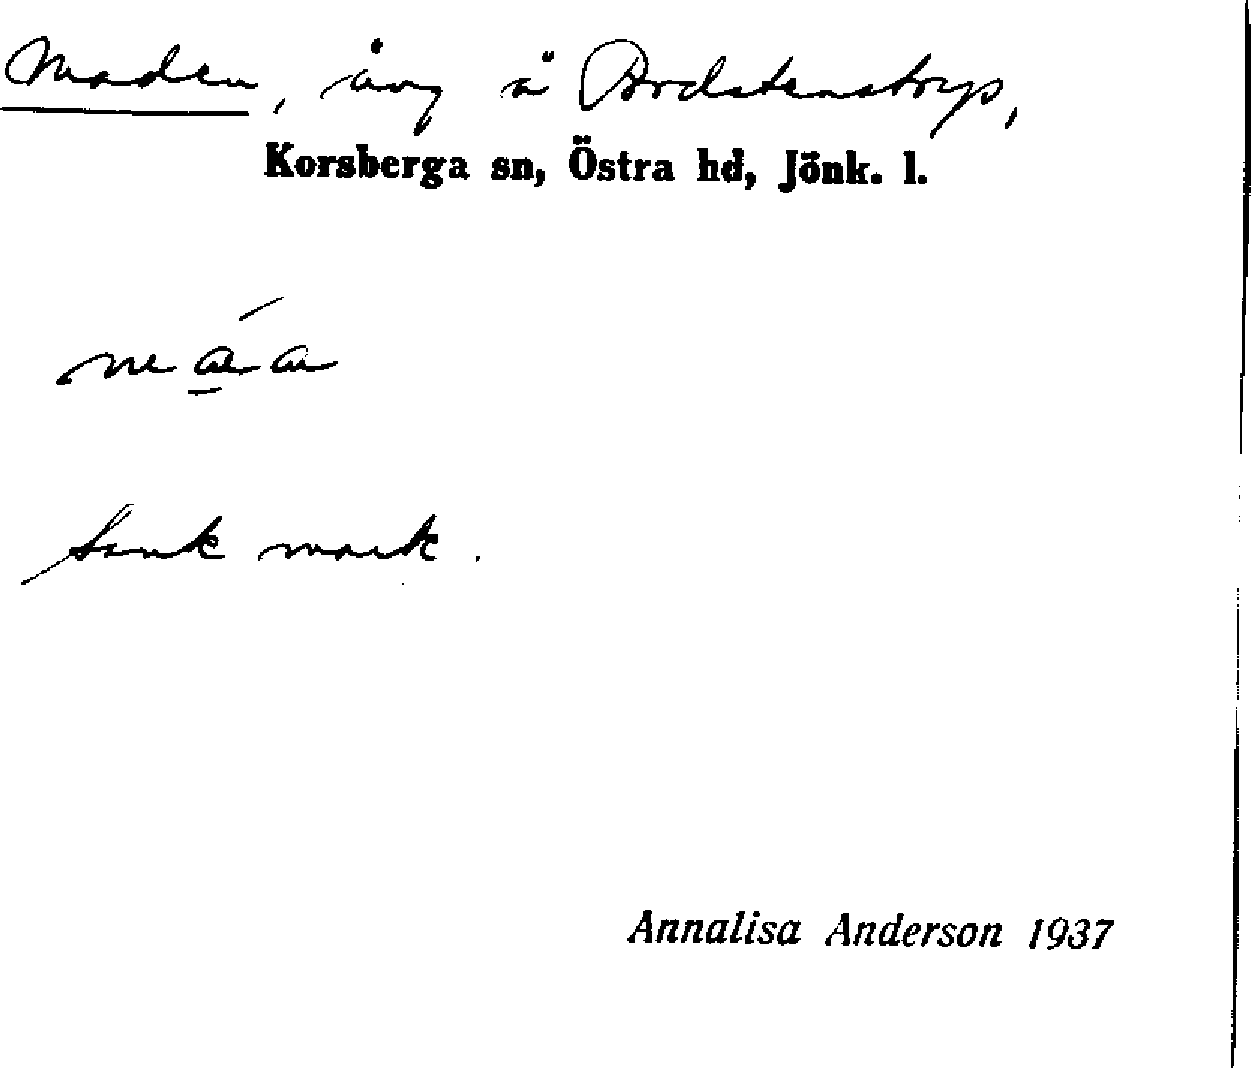 Maden, äng å Bordstenstorp,
Korsberga sn, Östra hd, Jönk. l.
Sank mark.
Annalisa Anderson 1937